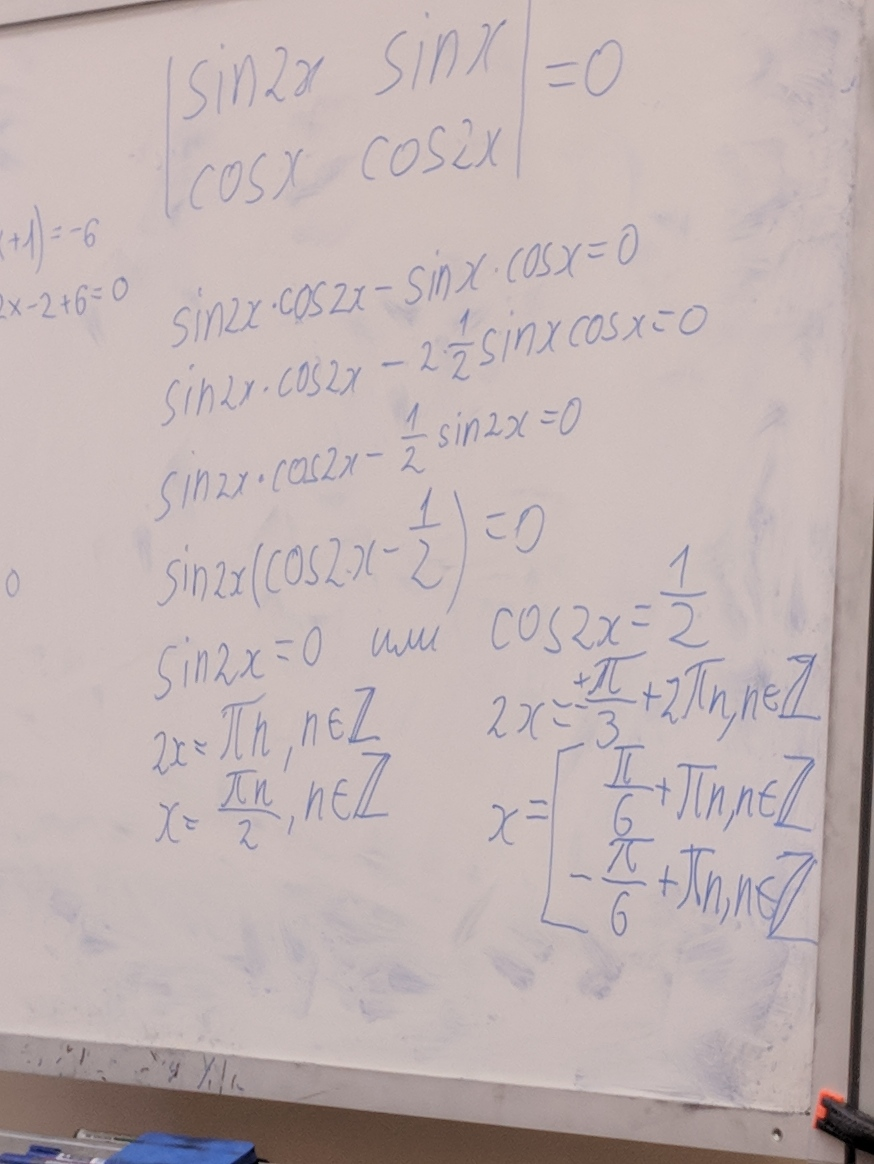 |sin2x sinx|
|cosx cos2x| =0
x+1)=-6
2x-2+6=0
sin2x·cos2x-sinx·cosx=0
sin2x·cos2x-2·1/2sinxcosx=0
sin2x·cos2x-1/2sin2x=0
sin2x(cos2x-1/2)=0
0
sin2x=0 или cos2x=1/2
2x=πn,n∈ℤ
2x=±π/3+2πn,n∈ℤ
x=πn/2,n∈ℤ
x=[π/6+πn,n∈ℤ
-π/6+πn,n∈ℤ